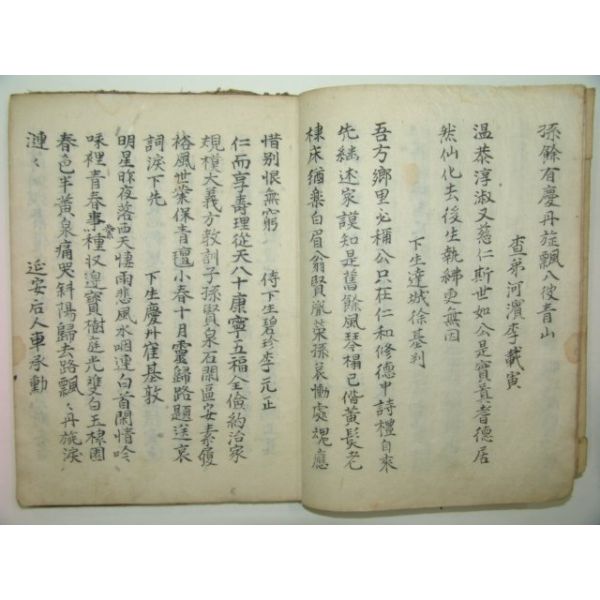 孫餘有慶丹旌飄入彼青山
查弟河濱李載寅
温恭淳淑又慈仁斯世如公是寶眞耆德居
然仙化去後生執紼更無因
下生達城徐基判
吾方鄉里必稱公只在仁和修德中詩禮自來
先繼述家謨知是舊餘風琴榻已偕黃髮老
棣床猶樂白眉翁賢胤榮孫哀慟處魂應
惜别恨無窮 侍下生碧珍李元正
仁而享壽理從天八十康寧五福全儉約治家
規模大義方教訓子孫賢泉石開區安素履
裕風世業保青氊小春十月靈歸路題送哀
詞淚下先 下生慶州崔基敦
明星昨夜落西天悽雨悲風水咽連白首閑情吟
咏裡青春事業種收邊寶樹庭光雙白玉棣園
春色半黃泉痛哭斜陽歸去路飄〻丹旌淚
漣〻 延安后人車承勳